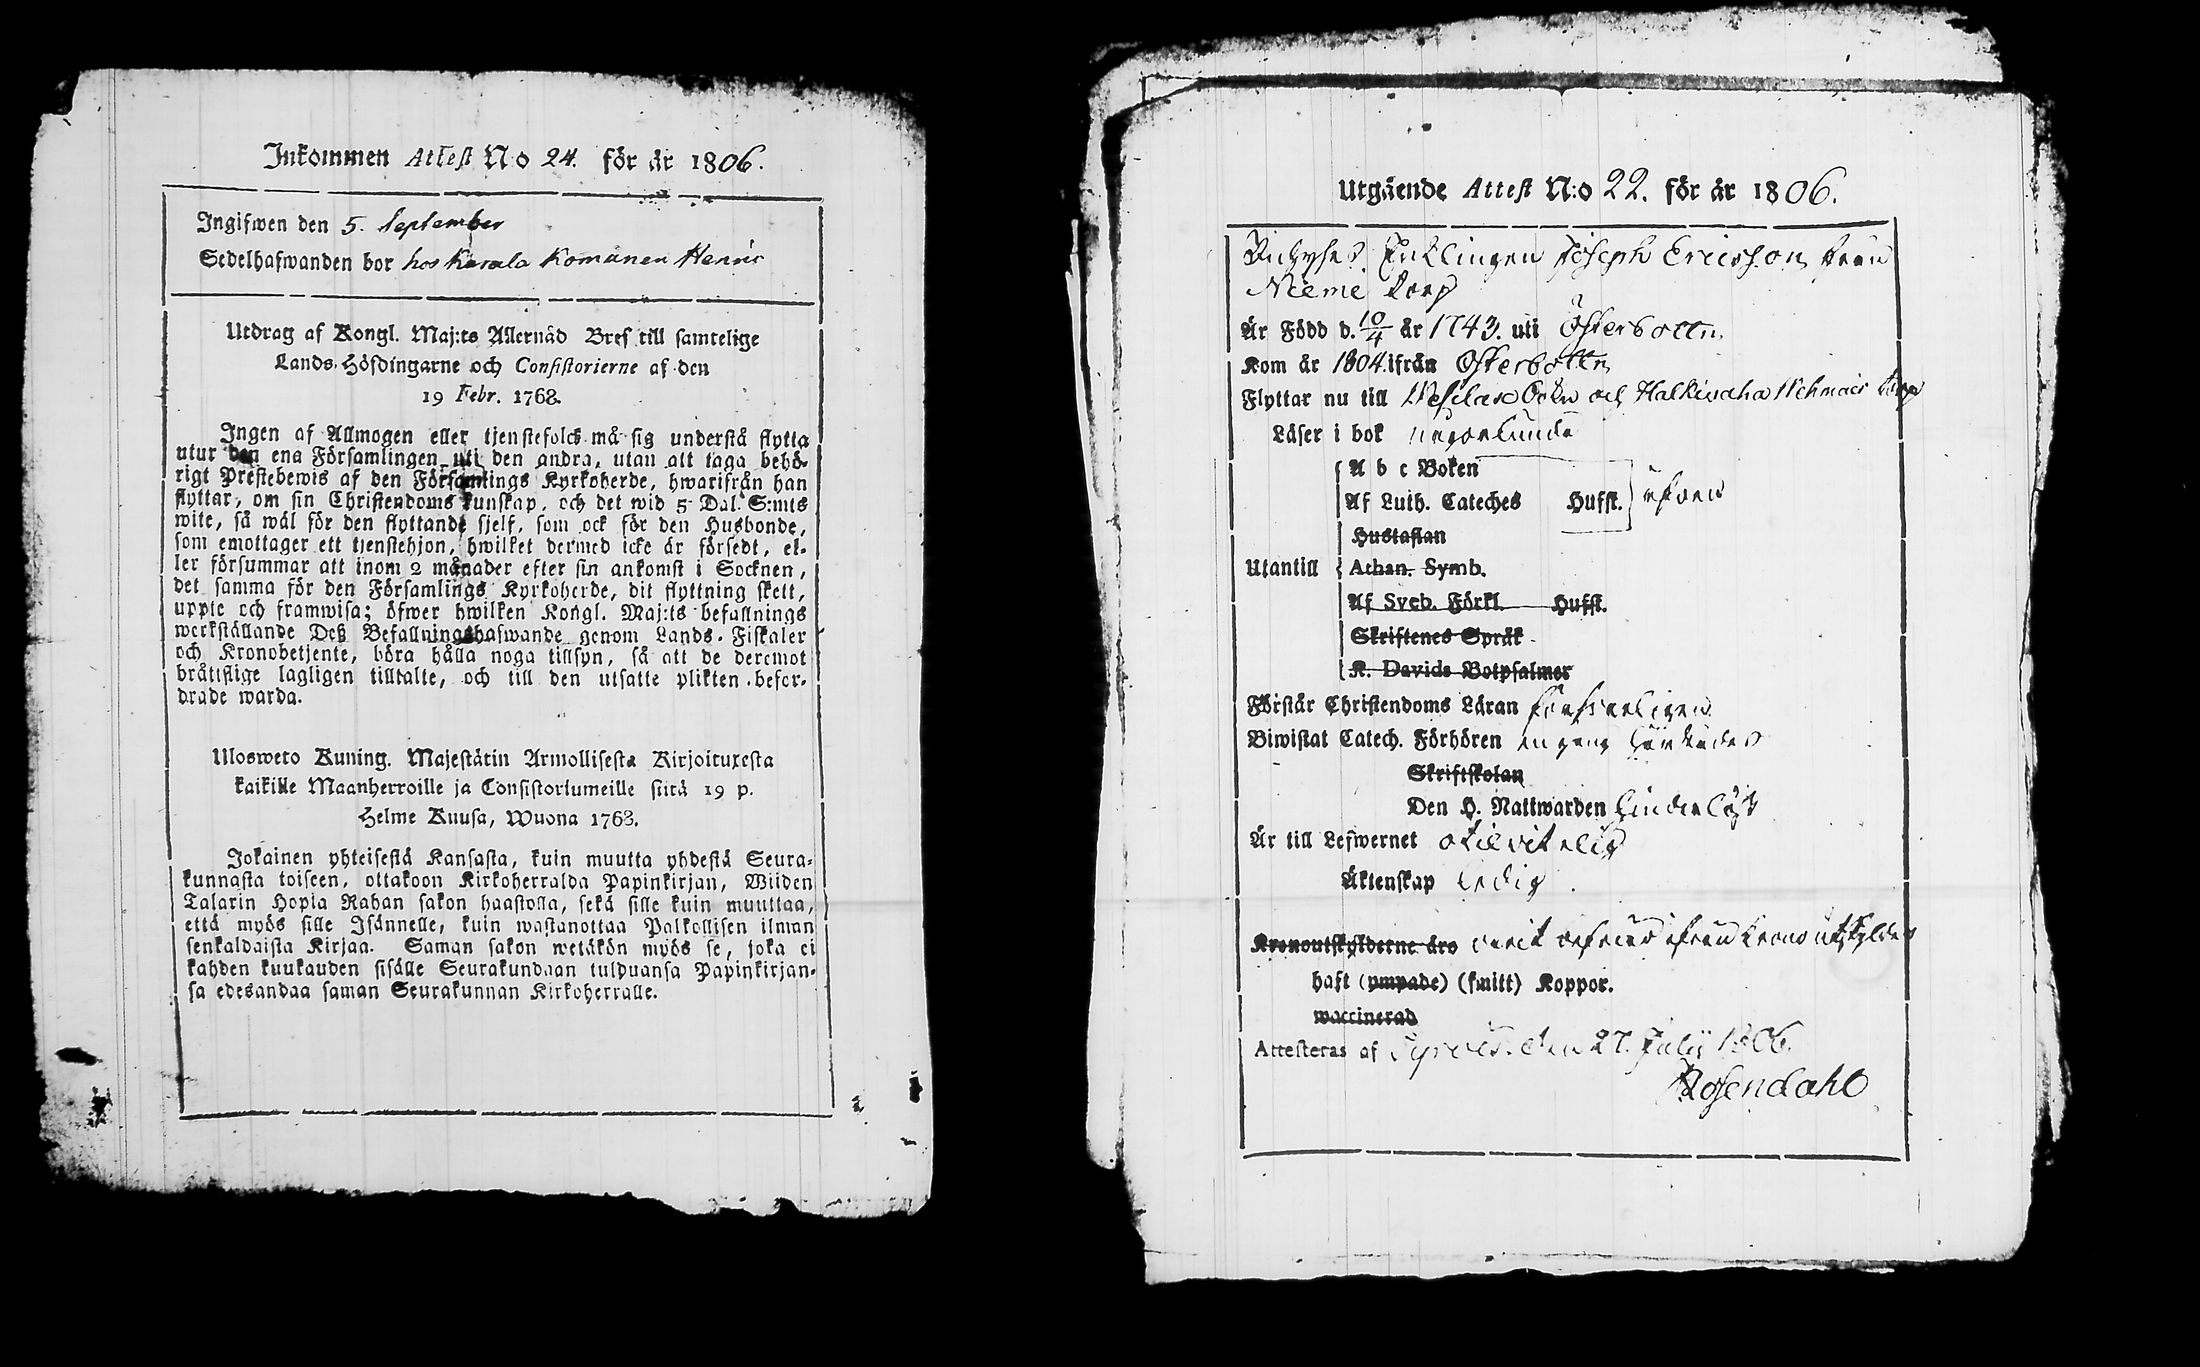 Inkommen Attest N:o 24. för år 1806.
Ingifwen den 5. September
Sedelhafwanden bor hos Karala Komänen Henric
Utdrag af Kongl. Maj:ts Allernåd Bref till samtelige
Lands-Höfdingarne och Consistorierne af den
19 Febr. 1768.
Ingen af Allmogen eller tjenstefolck må sig understå flytta
utur den ena Församlingen uti den andra, utan att taga behö-
rigt Prestebewis af den Församlings Kyrkoherde, hwarifrån han
flyttar, om sin Christendoms kunskap, och det wid 5 Dal. S:mts
wite, så wäl för den flyttande sjelf, som ock för den Husbonde,
som emottager ett tjenstehjon, hwilket dermed icke är försedt, el-
ler försummar att inom 2 månader efter sin ankomst i Socknen,
det samma för den Församlings Kyrkoherde, dit flyttning skett,
uppte och framwisa; öfwer hwilken Kongl. Maj:ts befallnings
werkställande Deß Befallningshafwande genom Lands-Fiskaler
och Kronobetjente, böra hålla noga tillsyn, så att de deremot
bråttslige lagligen tilltalte, och till den utsatte plikten befor-
drade warda.
Ulosweto Kuning. Majestätin Armollisesta Kirjoituxesta
kaikille Maanherroille ja Consistoriumeille siitä 19 p.
Helme Kuusa, Wuona 1768.
Jokainen yhteisestä Kansasta, kuin muutta yhdestä Seura-
kunnasta toiseen, ottakoon Kirkoherralda Papinkirjan, Wiiden
Talarin Hopia Rahan sakon haastolla, sekä sille kuin muuttaa,
että myös sille Isännelle, kuin wastanottaa Palkollisen ilman
senkaldaista Kirjaa. Saman sakon wetäkön myös se, joka ei
kahden kuukauden sisälle Seurakundaan tulduansa Papinkirjan-
sa edesandaa saman Seurakunnan Kirkoherralle.
Utgående Attest N:o 22. för år 1806.
Enklingen Joseph Ericsson från
Niemi torp
Är Född d. 10/4 år 1743. uti Österbottn
Kom år 1804 ifrån Österbottn
Flyttar nu till Wesilax Sokn och torp
Läser i bok någorlunda
A b c Boken
Af Luth. Cateches Husst. utan
Hustaflan
Utantill Athan. Symb.
Af Sveb. Förkl. Husst.
Skriftenes Språk
K. Davids Botpsalmer
Förstår Christendoms Läran försvarligen
Biwistat Catech. Förhören en gång
Skriftskolan
Den H. Nattwarden
Är till Lefwernet otilvitelig
Äktenskap Ledig.
Kronoutskylderne äro varit befriad ifrån Krono utskylder
haft (ympade) (smitt) Koppor.
waccinerad
Attesteras af den 27. Julii 1806.
Rosendahl